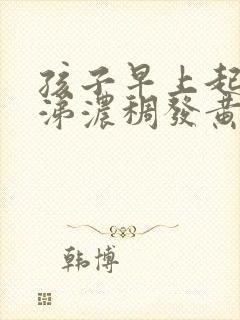 孩子早上起
涕濃稠發黃
韩博